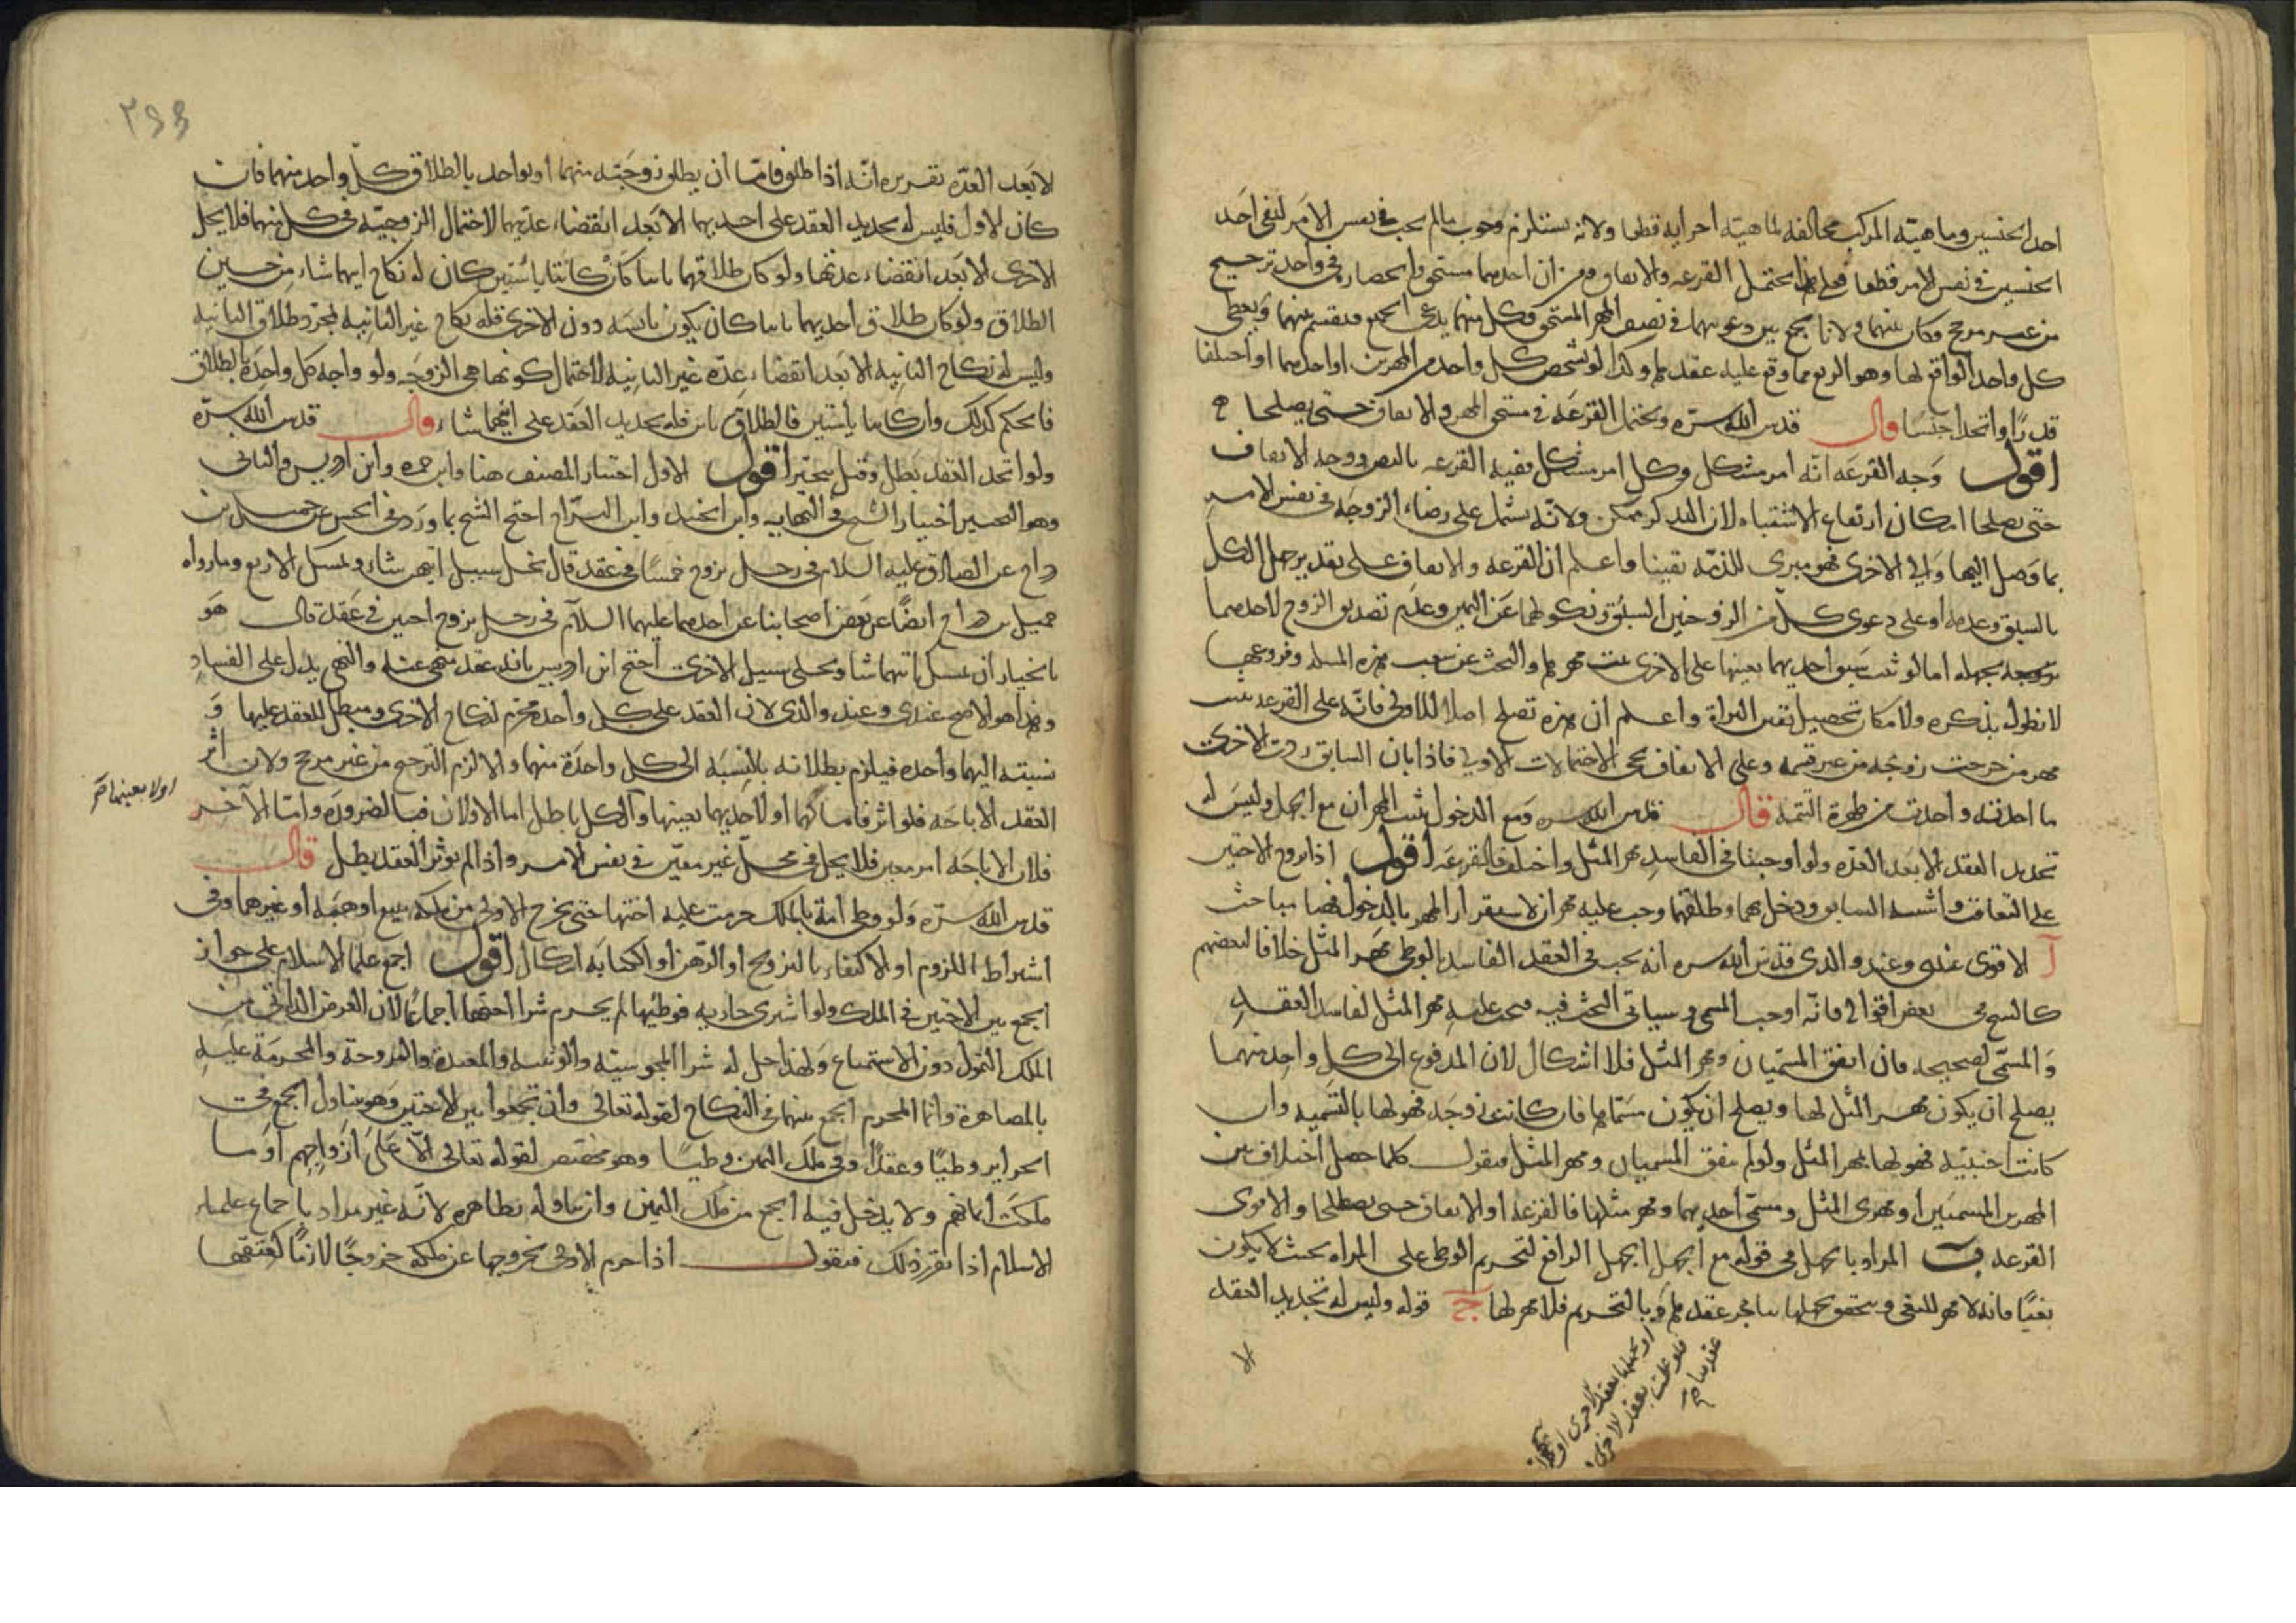 احد الجنسين وماهية المركب مخالفة لماهية اجزايه قطعا ولانه يستلزم وجوب مالم يجب في نفس الامر لنفي احد
الجنسين في نفس الامر قطعا فعلى هذا يحتمل القرعه والايقاف ومن ان احدهما مستحق وانحصاره في واحد ترجيح
من غير مرجح وكان بينهما ولانا نجمع بين دعوتهما في نصف المهر المستحق وكل منهما يدعى الجميع فيقسم بينهما ويعطى
كل واحد الواقع لها وهو الربع مما وقع عليه عقدهما وكذا لو تشخص كل واحد من المهرين او احدهما او اختلفا
قدرًا واتحدا جنسًا قال قدس الله سره ويحتمل القرعه في مستحق المهر والايقاف حتى يصطلحا
اقول وجه القرعه انه امر مشكل وكل امر مشكل ففيه القرعه بالنص ووجه الايقاف
حتى يصطلحا امكان ارتفاع الاشتباه لان التذكر ممكن ولانه يشتمل على رضاء الزوجه في نفس الامر
بما وصل اليها والى الاخرى فهو مبرئ للذمه يقينا واعلم ان القرعه والايقاف على تقدير جهل الكل
بالسبق وعدمه او على دعوى كل من الزوجتين السبق ونكولهما عن اليمين وعدم تصديق الزوج لاحدهما
بجهله اما لو ثبت سبق احديهما بعينها على الاخرى ثبت مهرها والبحث عن شعب هذه المسله وفروعها
لا نطول بذكره ولامكان تحصيل يقين البراة واعلم ان هذه تصلح اصلا للاولى فانه على القرعه يثبت
مهر من خرجت زوجه من غير قسمه وعلى الايقاف يجئ الاحتمالات الاولى فاذا بان السابق ردت الاخرى
ما اخذته واخذت التتمة قال قدس الله سره ومع الدخول يثبت المهران مع الجهل وليس له
تجديد العقد الا بعد العده ولو اوجبنا في الفاسد مهر المثل واختلف فالقرعه اقول اذا تزوج الاختين
على التعاقب واشتبه السابق ودخل بهما وطلقهما وجب عليه مهران لاستقرار المهر بالدخول فهنا مباحث
آ الاقوى عندى وعند والدى قدس الله سره انه يجب في العقد الفاسد بالوطى مهر المثل خلافا لبعضهم
كالشيخ في بعض اقواله فانه اوجب المسمى وسياتى البحث فيه فيجب عليه مهر المثل لفاسد العقد
والمسمى لصحيحه فان اتفق المسميان ومهر المثل فلا اشكال لان المدفوع الى كل واحد منهما
يصلح ان يكون مهر المثل لها ويصلح ان يكون مسماها فان كانت زوجة فهو لها بالتسميه وان
كانت اجنبيه فهو لها بمهر المثل ولو لم يتفق المسميان ومهر المثل فنقول كلما حصل اختلاف بين
المهرين المسميين او مهرى المثل ومسمى احديهما ومهر مثلها فالقرعه او الايقاف حتى يصطلحا والاقوى
القرعه ب المراد بالجهل في قوله مع الجهل الجهل الرافع لتحريم الوطى على المراه بحيث لا يكون
بغيًا فانه لا مهر للبغى ويتحقق وبالتحريم فلا مهر لها ج قوله وليس له تجديد العقد
الا بعد العدّه تقريره انّه اذا طلق فامّا ان يطلق زوجته منهما او يواجد بالطلاق كلّ واحد منهما فان
كان الاول فليس له تجديد العقد على احديهما الا بعد انقضاء عدتهما لاحتمال الزوجيّه في كل منهما فلا يحل
الاخرى الا بعد انقضاء عدتها ولو كان طلاقهما باينا كان كانتا يائستين كان له نكاح ايهما شاء من حين
الطلاق ولو كان طلاق احديهما باينا كان يكون يائسه دون الاخرى فله نكاح غير الثانيه بمجرد طلاق الثانيه
وليس له نكاح الثانيه الا بعد انقضاء عدّه غير الثانيه لاحتمال كونها هى الزوجه ولو واجه كل واحدة بالطلاق
فالحكم كذلك وان كانتا يائستين فالطلاق باين فله تجديد العقد على ايهما شاء قال قدس الله سرّه
ولو اتحد العقد بطل وقيل يتخير اقول الاول اختيار المصنف هنا وابن حمزه وابن ادريس والثانى
وهو التخيير اختيار الشيخ في النهايه وابن الجنيد وابن البرّاج احتج الشيخ بما ورد في الحسن عن جميل بن
دراج عن الصادق عليه السلام في رجل تزوج خمسًا في عقد قال يخلى سبيل ايتهن شاء ويمسك الاربع وما رواه
جميل بن دراج ايضًا عن بعض اصحابنا عن احدهما عليهما السلام في رجل تزوج اختين في عقدة قال هو
بالخيار ان يمسك ايتهما شاء ويخلى سبيل الاخرى احتج ابن ادريس بانه عقد منهى عنه والنهى يدل على الفساد
وهذا هو الاصح عندى وعند والدى لان العقد على كل واحدة محرم لنكاح الاخرى ومبطل للعقد عليها و
نسبته اليهما واحده فيلزم بطلانه بالنسبه الى كل واحدة منهما والا لزم الترجيح من غير مرجح ولان اثر
العقد الاباحه فلو اثر فاما لهما او لاحديهما بعينها والكل باطل اما الاولان فبالضرورة وامّا الآخر
اولا بعينها صح
فلان الاباحه امر معين فلا يحل في محل غير معيّن في نفس الامر واذا لم يوثر العقد بطل قال
قدس الله سرّه ولو وطى امة بالملك حرمت عليه اختها حتى تخرج الاولى من ملكه ببيع او هبه او غيرهما وفى
اشتراط اللزوم او الاكتفاء بالتزويج او الرهن او الكتابه اشكال اقول اجمع علما الاسلام على جواز
الجمع بين الاختين في الملك ولو اشترى جاريه فوطيها لم يحرم شرا اختها اجماعًا لان الغرض الذاتى من
الملك التمول دون الاستمتاع ولهذا حل له شرا المجوسيّه والوثنيه والمعتدة والمزوجة والمحرمة عليه
بالمصاهرة وانما المحرم الجمع بينهما في النكاح لقوله تعالى وان تجمعوا بين الاختين وهو يتناول الجمع في
الحراير وطيًا وعقدًا وفى ملك اليمين وطيًا وهو مختص لقوله تعالى الّا على ازواجهم او ما
ملكت ايمانهم ولا يدخل فيه الجمع من ملك اليمين وان تناوله بظاهره لانّه غير مراد باجماع علماء
الاسلام اذا تقرر ذلك فنقول اذا حرم الاولى بخروجها عن ملكه خروجًا لازمًا كعتقها